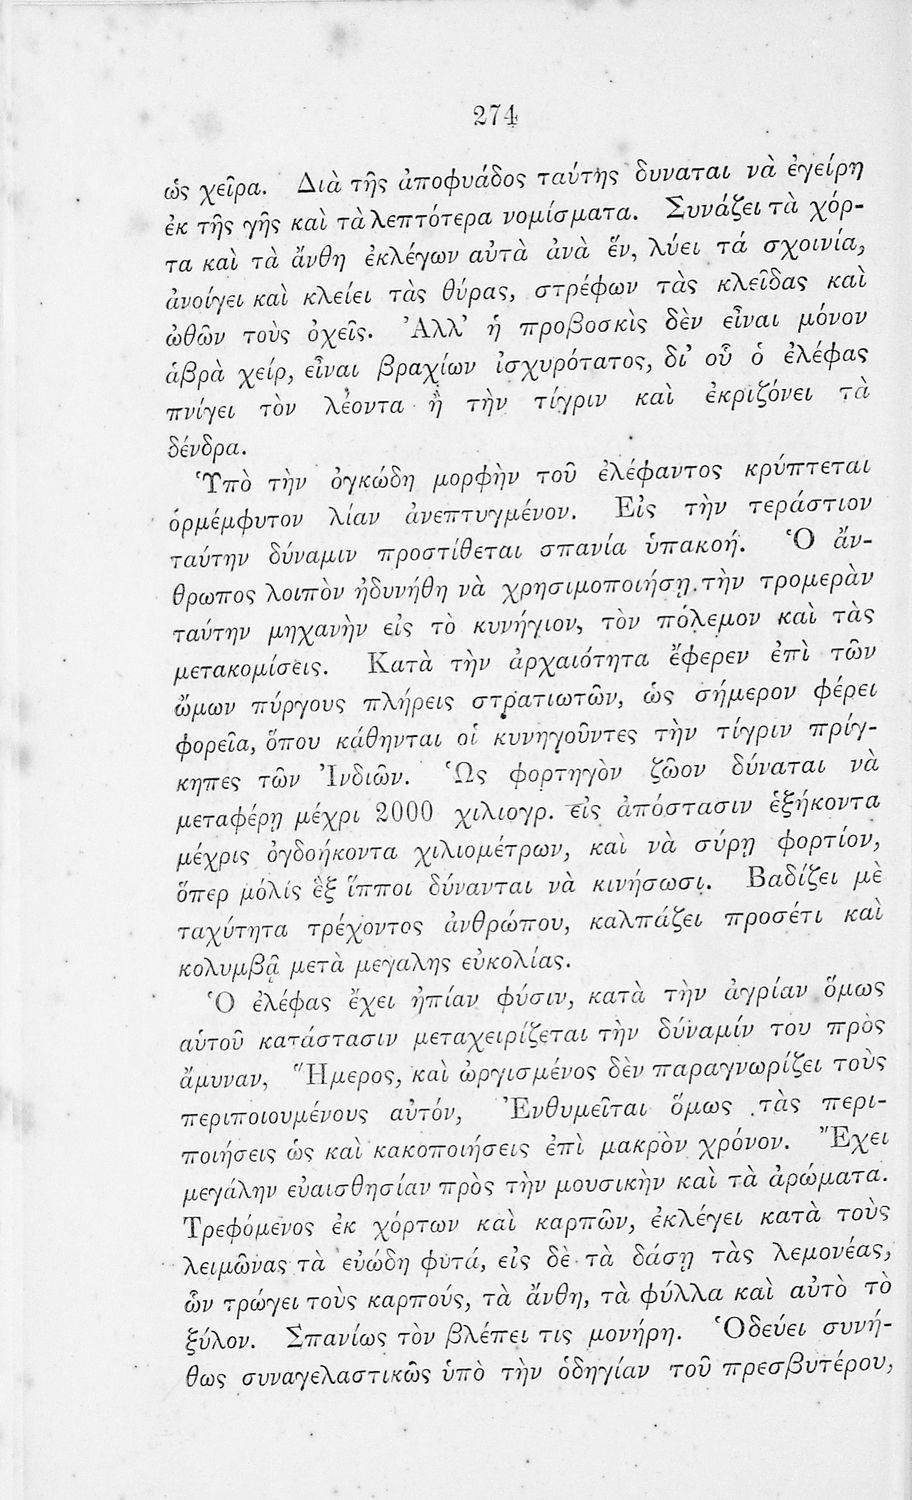 274
ὡς χεῖρα. Διὰ τῆς ἀποφυάδος ταύτης δυναται νὰ ἐγείρῃ
ἐκ τῆς γῆς καὶ τὰ λεπτότερα νομίσματα. Συνάζει τὰ χόρ-
τα καὶ τὰ ἄνθη ἐκλέγων αὐτὰ ἀνὰ ἕν, λύει τά σχοινία,
ἀνοίγει καὶ κλείει τὰς θύρας, στρέφων τὰς κλεῖδας καὶ
ὠθῶν τοὺς ὀχεῖς. Ἀλλ’ ἡ προβοσκὶς δὲν εἶναι μόνον
ἁβρὰ χείρ, εἶναι βραχίων ἰσχυρότατος, δι’ οὗ ὁ ἐλέφας
πνίγει τὸν λέοντα ἢ τὴν τίγριν καὶ ἐκριζόνει τὰ
δένδρα.
Ὑπὸ τὴν ὀγκώδη μορφὴν τοῦ ἐλέφαντος κρύπτεται
ὁρμέμφυτον λίαν ἀνεπτυγμένον. Εἰς τὴν τεράστιον
ταύτην δύναμιν προστίθεται σπανία ὑπακοή. Ὁ ἄν-
θρωπος λοιπὸν ἠδυνήθη νὰ χρησιμοποιήσῃ τὴν τρομερὰν
ταύτην μηχανὴν εἰς τὸ κυνήγιον, τὸν πόλεμον καὶ τὰς
μετακομίσεις. Κατὰ τὴν ἀρχαιότητα ἔφερεν ἐπὶ τῶν
ὤμων πύργους πλήρεις στρατιωτῶν, ὡς σήμερον φέρει
φορεῖα, ὅπου κάθηνται οἱ κυνηγοῦντες τὴν τίγριν πρίγ-
κηπες τῶν Ἰνδιῶν. Ὡς φορτηγὸν ζῶον δύναται νὰ
μεταφέρῃ μέχρι 2000 χιλιογρ. εἰς ἀπόστασιν ἑξήκοντα
μέχρις ὀγδοήκοντα χιλιομέτρων, καὶ νὰ σύρῃ φορτίον,
ὅπερ μόλίς ἓξ ἵπποι δύνανται νὰ κινήσωσι. Βαδίζει μὲ
ταχύτητα τρέχοντος ἀνθρώπου, καλπάζει προσέτι καὶ
κολυμβᾷ μετὰ μεγαλης εὐκολίας.
Ὁ ἐλέφας ἔχει ἠπίαν φύσιν, κατὰ τὴν ἀγρίαν ὅμως
αὐτοῦ κατάστασιν μεταχειρίζεται τὴν δύναμίν του πρὸς
ἄμυναν, Ἥμερος, καὶ ὠργισμένος δὲν παραγνωρίζει τοὺς
περιποιουμένους αὐτόν, Ἐνθυμεῖται ὅμως τὰς περι-
ποιήσεις ὡς καὶ κακοποιήσεις ἐπὶ μακρὸν χρόνον. Ἔχει
μεγάλην εὐαισθησίαν πρὸς τὴν μουσικὴν καὶ τὰ ἀρώματα.
Τρεφόμενος ἐκ χόρτων καὶ καρπῶν, ἐκλέγει κατὰ τοὺς
λειμῶνας τὰ εὐώδη φυτά, εἰς δὲ τὰ δάση τὰς λεμονέας,
ὧν τρώγει τοὺς καρπούς, τὰ ἄνθη, τὰ φύλλα καὶ αὐτὸ τὸ
ξύλον. Σπανίως τὸν βλέπει τις μονήρη. Ὁδεύει συνή-
θως συναγελαστικῶς ὑπὸ τὴν ὁδηγίαν τοῦ πρεσβυτέρου,